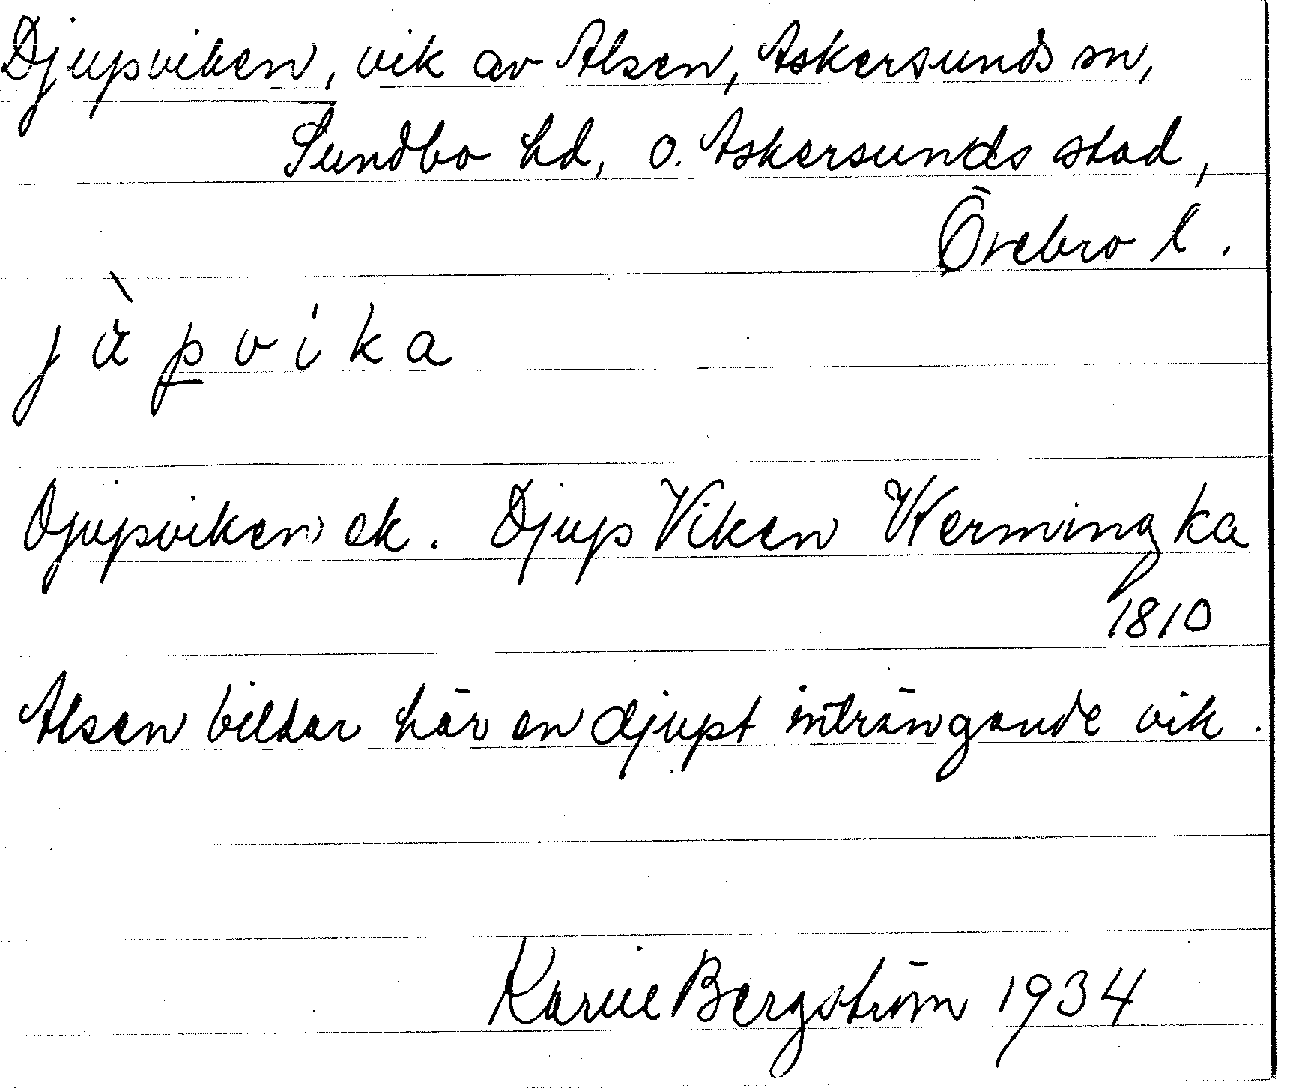 Djupviken, vik av Alsen, Askersunds sn,
Sundbo hd, o. Askersunds stad,
Örebro l.
jàpvika
Djupviken ek. Djup Viken Werming ka
1810
Alsen bildar här en djupt inträngande vik.
Bergström 1934